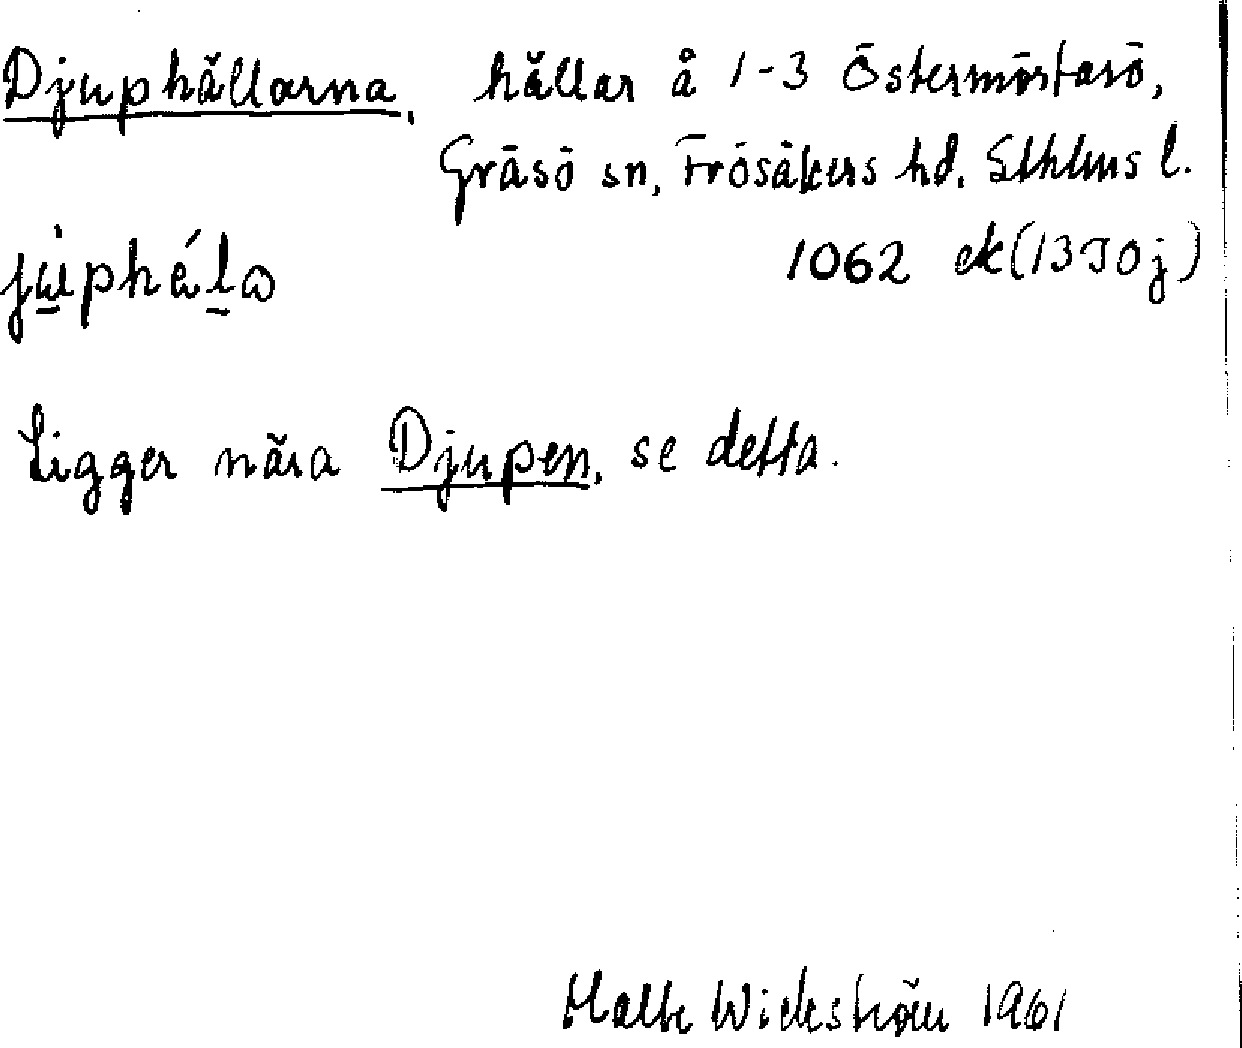 Djuphällarna, hällar å 1-3 Östermörtarö,
Gräsö sn, Frösåkers hd, Sthlms l.
jùphéla 1062 ek (13I0j)
Ligger nära Djupen, se detta.
Wickström 1961